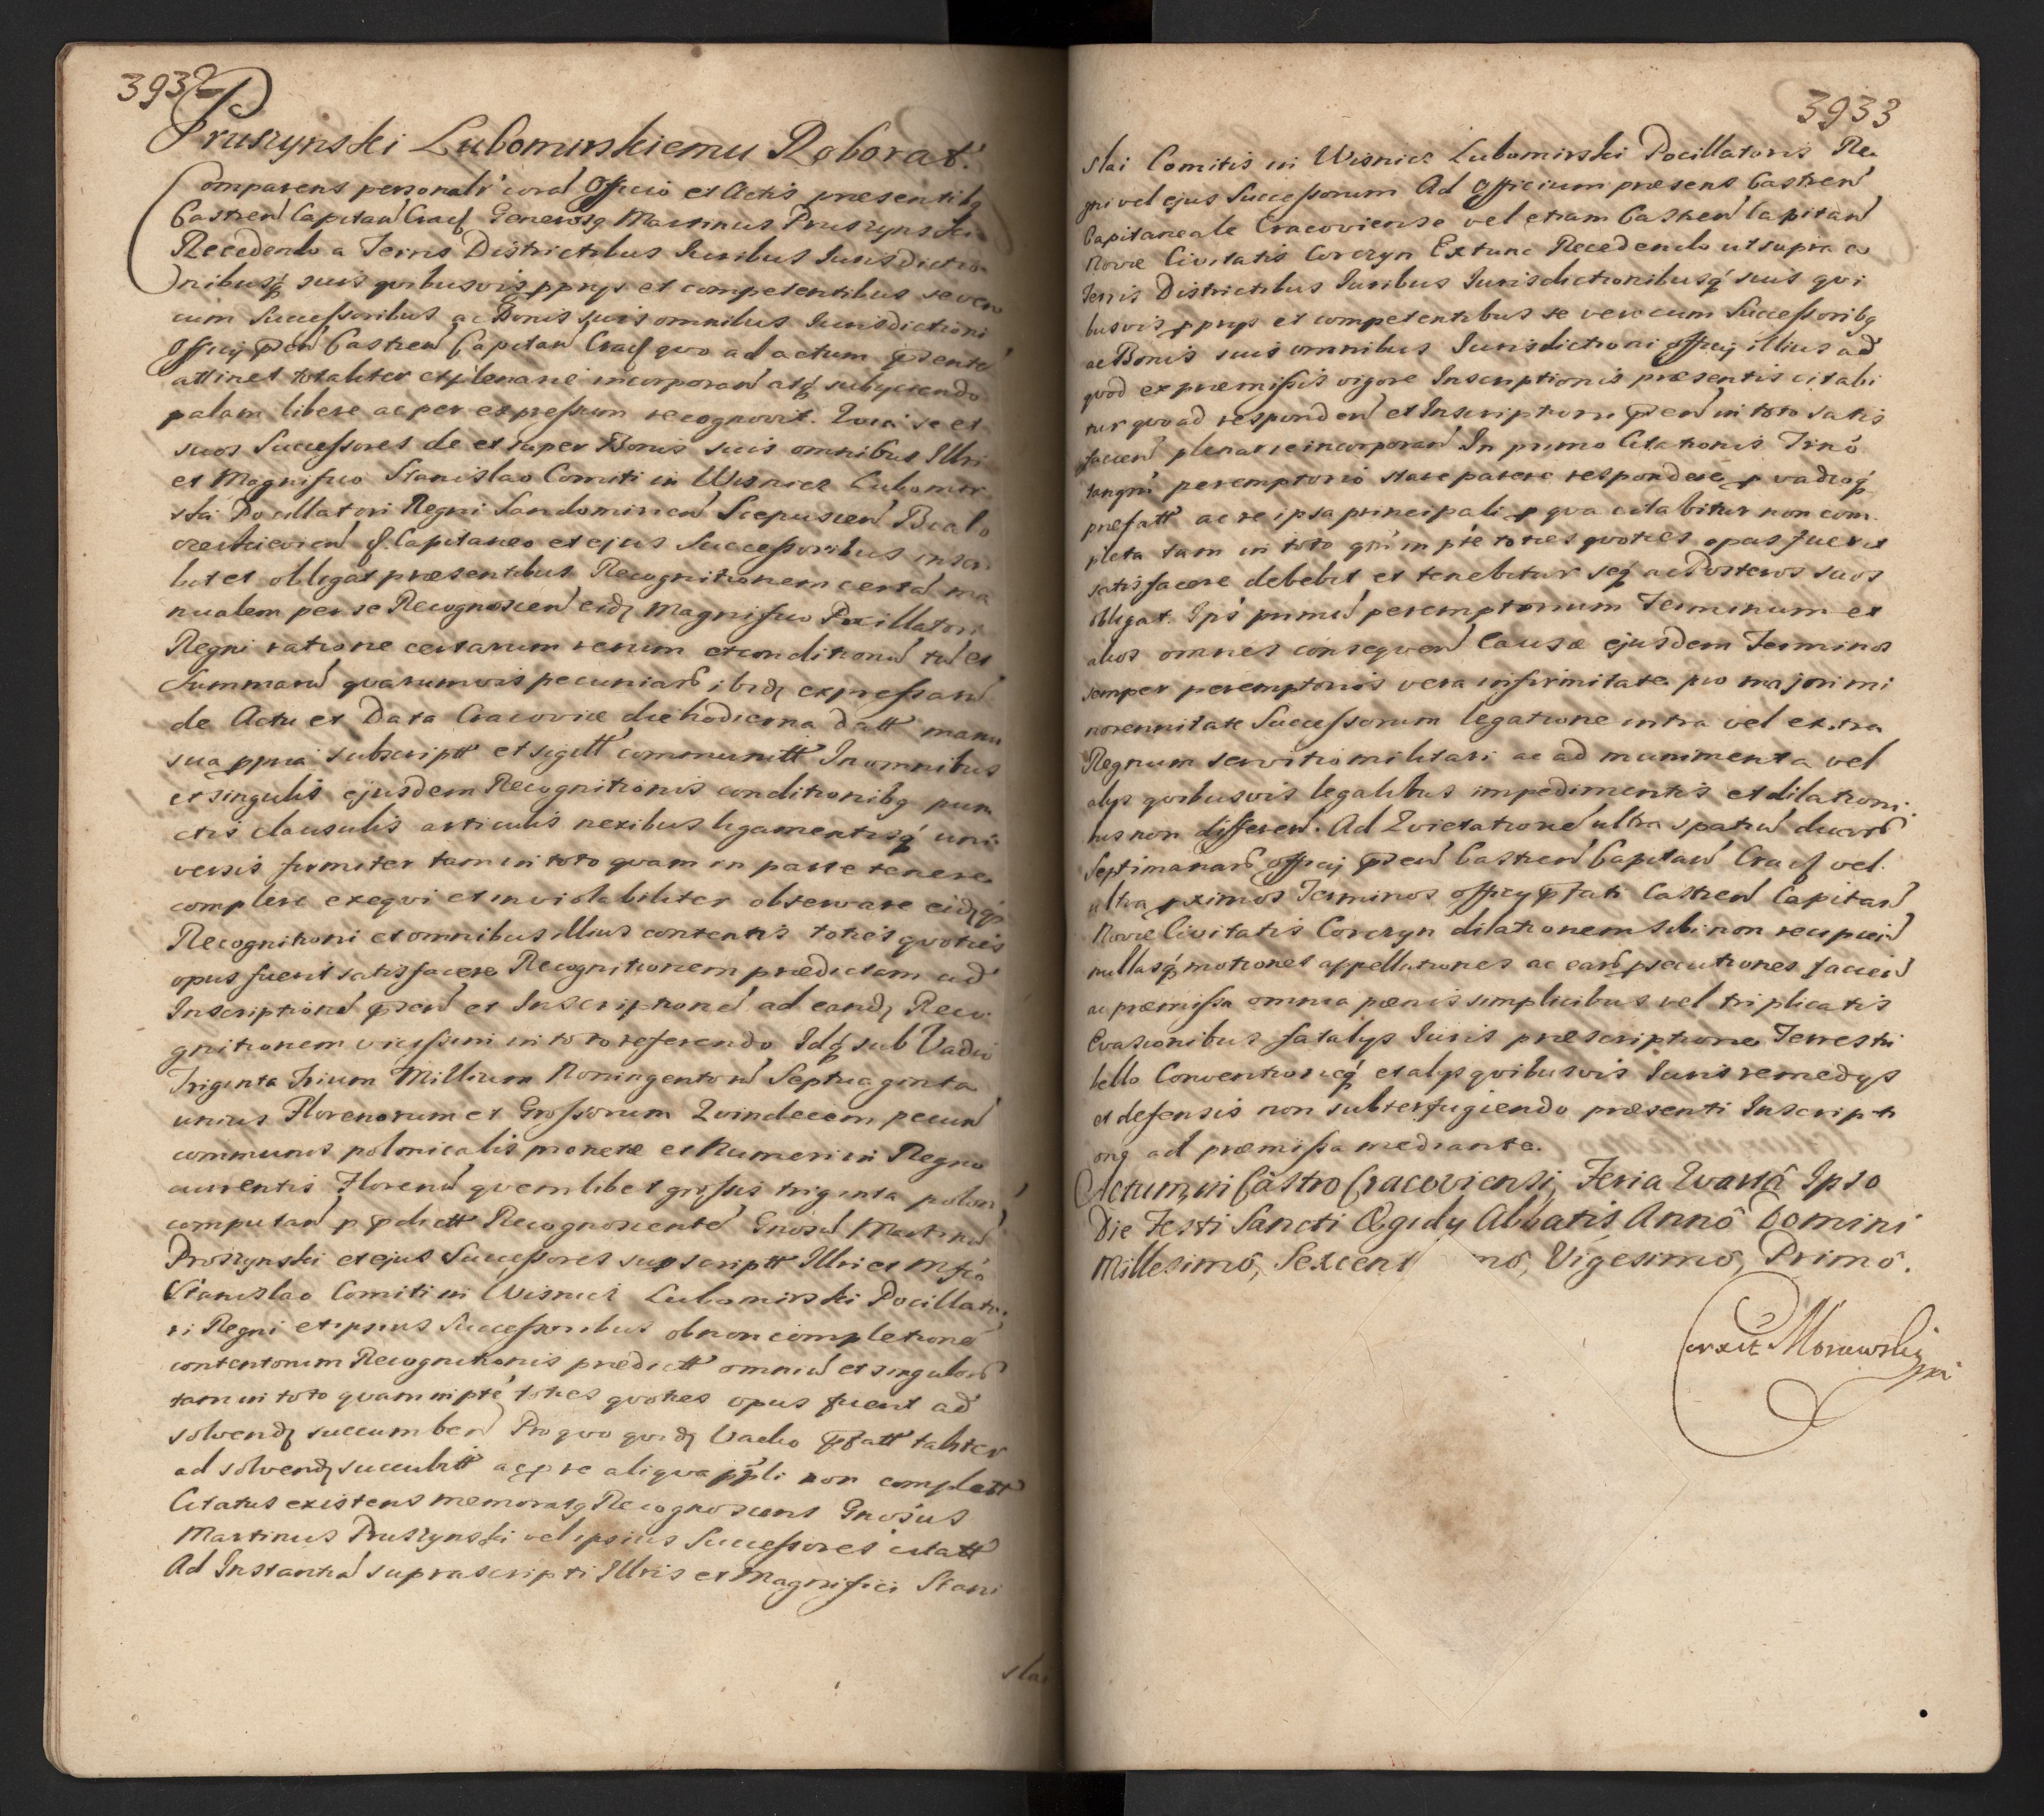 3932
Pruszynski Lubomirskiemu Roborat.
Comparens personalr corā Officio et Actis præsentibq
Castreń Capitań Cracf Generosq Martinus Pruszynski
Recedendo a Terris Districtibus Juribus Jurisdictio
nibusq́ suis quibusvis pprys et competentibus se vero
cum Successoribus ac Bonis suis omnibus Jurisdictioni
Officij pseń Castreń Capitań Cracf quo ad actum psentē
attinet totaliter et plenarie incorporań atq́ subyciendo
palam libere ac per expressum recognovit. Quia se et
suos Successores de et super Bonis suis omnibus Illri
et Magnifico Stanislao Comiti in Wisnicz Lubomir
ski Pocillatori Regni Sandomirień Scepusień Bialo
cerkieviēn & Capitaneo et ejus Successoribus inscri
bit et obligat præsentibus Recognitionem certā ma
nualem per se Recognosceń eidʒ Magnifico Pocillatori
Regni ratione certarum rerum et conditionū tū et
Summarū quarumvis pecuniarū ibidʒ expressarū
de Actu et Data Cracoviæ die hodierna datt manu
sua ppria subscriptt et sigill communitt In omnibus
et singulis ejusdem Recognitionis conditionibq pun
ctis clausulis articulis nexibus ligamentisq́ uni
versis firmiter tam in toto quam in parte tenere
complere exequi et inviolabiliter observare eidʒq́
Recognitioni et omnibus illius contentis toties quoties
opus fuerit satisfacere Recognitionem prædictam ad
Inscriptionē pseń et Inscriptionē ad eandʒ Reco
gnitionem vicissim in toto referendo Idq́ sub Vadio
Triginta Trium Millium Noningentorū Septuaginta
unius Florenorum et Grossorum Quindecem pecuń
communis polonicalis monetæ et Numeri in Regno
currentis Florenū quemlibet grossis triginta polon
computań p pdictt Recognoscentē Gnosū Martinū
Proszynski et ejus Successores supscriptt Illri et Mfco
Stanislao Comiti in Wisnicz Lubomirski Pocillato
ri Regni et ipsius Successoribus ob non completionē
contentorum Recognitionis prædictt omniū et singulorū
tam in toto quam in pte toties quoties opus fuerit ad
solvendʒ succumbeń Pro quo quidʒ Vadio pfatt taliter
ad solvendʒ succubitt ac p re aliqua ppli non complett
Citatus existens memoratq Recognoscens Gnosus
Martinus Pruszynski vel ipsius Successores citatt
Ad Instantiā suprascripti Illris et Magnifici Stani
slai
3933
slai Comitis in Wisnicz Lubomirski Pocillatoris Re
gni vel ejus Successorum Ad Officium præsens Castreń
Capitaneale Cracoviense vel etiam Castreń Capitań
Novæ Civitatis Corczyn Extunc Recedendo ut supra a
Terris Districtibus Juribus Jurisdictionibusq́ suis qui
busvis pprys et competentibus se vero cum Successoribq
ac Bonis suis omnibus Jurisdictioni Officij illius ad
quod ex præmissis vigore Inscriptionis præsentis citabi
tur quo ad respondeń et Inscriptioni pseń in toto satis
facień plenarie incorporań In primo Citationis Trnō
tanq̄m peremptorio stare parere respondere p vadioq́
prefatt ac re ipsa principali p qua citabitur non com
pleta tam in toto q̄m in pte toties quoties opus fuerit
satisfacere debebit et tenebitur seq́ ac Posteros suos
obligat. Ips primū peremptorium Terminum et
alios omnes consequeń Causæ ejusdem Terminos
semper peremptorios vera infirmitate pro majori mi
norennitate Successorum legatione intra vel extra
Regnum servitio militari ac ad munimenta vel
alys quibusvis legalibus impedimentis et dilationi
bus non differeń. Ad Quietationē ultra spatiū duarū
Septimanarū Officij pseń Castreń Capitań Cracf vel
ultra pximos Terminos Officy pfati Castreń Capitań
Novæ Civitatis Corczyn dilationem sibi non recipień
nullasq́ motiones appellationes ac earū psecutiones facień
ac præmissa omnia pœnis simplicibus vel triplicatis
Evasionibus fatalys Juris præscriptione Terrestri
bello Conventioneq́ et alys quibusvis Juris remedys
et defensis non subterfugiendo præsenti Inscripti
onq ad præmissa mediante.
Actum in Castro Cracoviensi, Feria Quartâ Ipso
Die Festi Sancti Ægidy Abbatis Annô Domini
Millesimô, Sexcent mô, Vigesimô, Primô.
Corexit Morawski